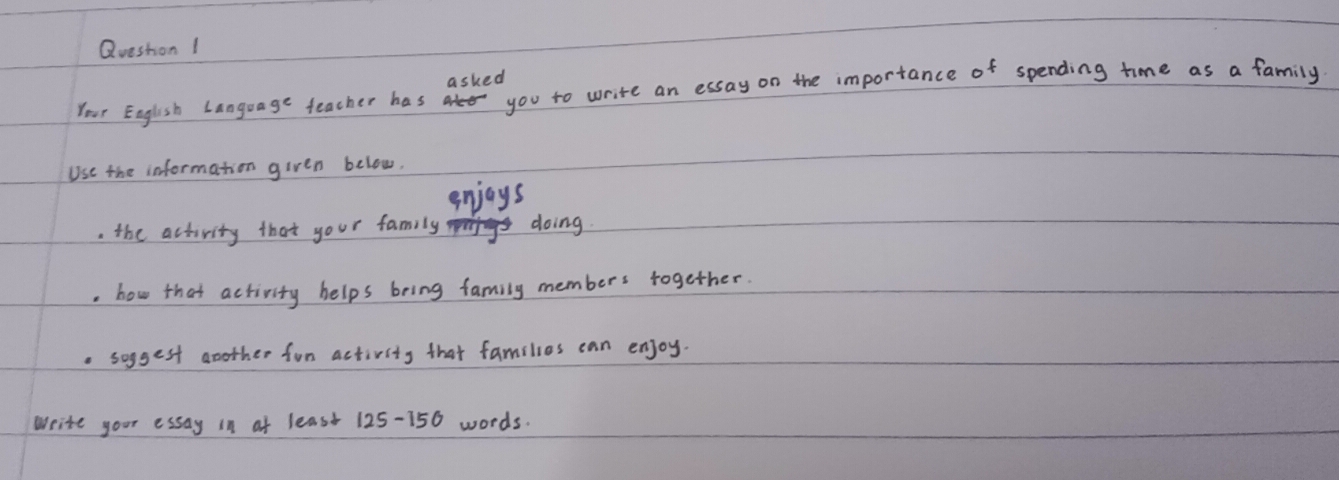 Question 1
Your English Language teacher has asked you to write an essay on the importance of spending time as a family.
Use the information given below.
• the activity that your family enjoys doing.
• how that activity helps bring family members together.
• suggest another fun activity that families can enjoy.
Write your essay in at least 125-150 words.